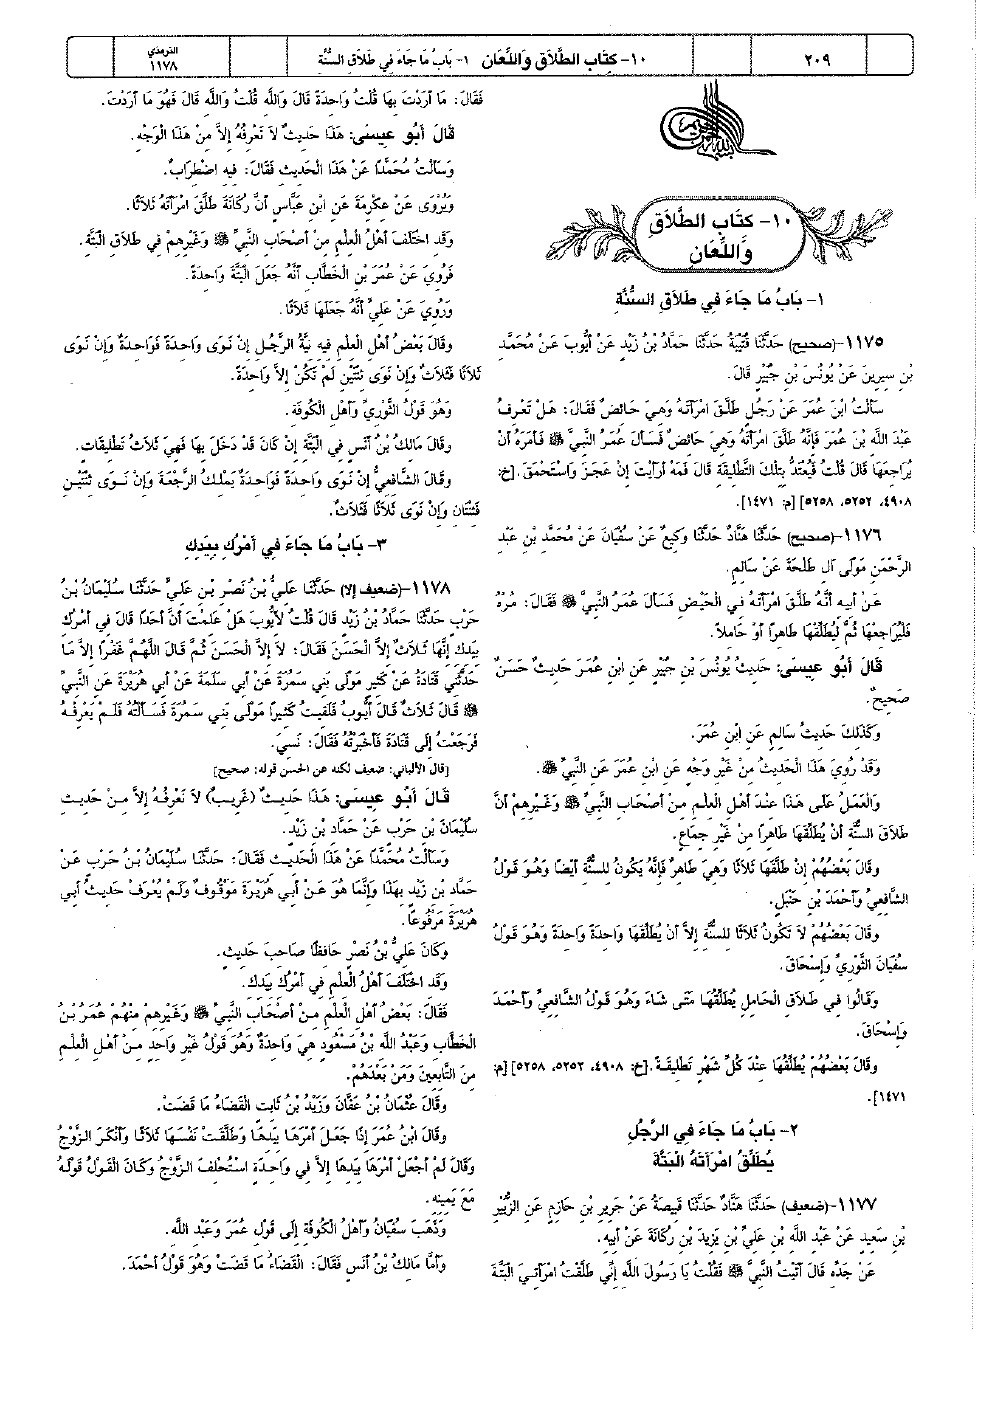 ٢٠٩
١٠- كتَاب الطَّلاَق وَاللِّعَان
١- بَابُ مَا جَاءَ في طَلاَق السُّنَّة
الترمذي
١١٧٨
١٠- كتَاب الطَّلاَق
وَاللِّعَان
١- بَابُ مَا جَاءَ في طَلاَق السُّنَّة
١١٧٥-(صحيح) حَدَّثَنَا قُتَيْبَةُ حَدَّثَنَا حَمَّادُ بْنُ زَيْد عَنْ أيُّوبَ عَنْ مُحَمَّد
بْنِ سيرينَ عَنْ يُونُسَ بْنِ جُبَيْرٍ قَالَ.
سَألْتُ ابْنَ عُمَرَ عَنْ رَجُلٍ طَلَّقَ امْرَأتَهُ وَهيَ حَائضٌ فَقَالَ: هَلْ تَعْرفُ
عَبْدَ اللَّه بْنَ عُمَرَ فَإنَّهُ طَلَّقَ امْرَأتَهُ وَهيَ حَائضٌ فَسَألَ عُمَرُ النَّبيَّ ﷺ فَأمَرَهُ أنْ
يُرَاجعَهَا قَالَ قُلْتُ فَيُعْتَدُّ بتلْكَ التَّطْليقَة قَالَ فَمَهْ أرَأيْتَ إنْ عَجَزَ وَاسْتَحْمَقَ.[خ:
٤٩٠٨، ٥٢٥٢، ٥٢٥٨] [م: ١٤٧١].
١١٧٦-(صحيح) حَدَّثَنَا هَنَّادٌ حَدَّثَنَا وَكيعٌ عَنْ سُفْيَانَ عَنْ مُحَمَّد بْنِ عَبْد
الرَّحْمَنِ مَوْلَى آلِ طَلْحَةَ عَنْ سَالمٍ.
عَنْ أبيه أنَّهُ طَلَّقَ امْرَأتَهُ في الْحَيْضِ فَسَألَ عُمَرُ النَّبيَّ ﷺ فَقَالَ: مُرْهُ
فَلْيُرَاجعْهَا ثُمَّ لْيُطَلِّقْهَا طَاهراً أوْ حَاملاً.
قَالَ أبُو عيسَى: حَديثُ يُونُسَ بْنِ جُبَيْرٍ عَنِ ابْنِ عُمَرَ حَديثٌ حَسَنٌ
صَحيحٌ.
وَكَذَلكَ حَديثُ سَالمٍ عَنِ ابْنِ عُمَرَ.
وَقَدْ رُويَ هَذَا الْحَديثُ منْ غَيْرِ وَجْه عَنِ ابْنِ عُمَرَ عَنِ النَّبيِّ ﷺ.
وَالْعَمَلُ عَلَى هَذَا عنْدَ أهْلِ الْعلْمِ منْ أصْحَابِ النَّبيِّ ﷺ وَغَيْرِهِمْ أنَّ
طَلاَقَ السُّنَّة أنْ يُطَلِّقَهَا طَاهراً منْ غَيْرِ جمَاعٍ.
وقَالَ بَعْضُهُمْ إنْ طَلَّقَهَا ثَلاَثًا وَهيَ طَاهرٌ فَإنَّهُ يَكُونُ للسُّنَّة أيْضًا وَهُوَ قَوْلُ
الشَّافعيِّ وَأحْمَدَ بْنِ حَنْبَلٍ.
وقَالَ بَعْضُهُمْ لاَ تَكُونُ ثَلاَثًا للسُّنَّة إلاَّ أنْ يُطَلِّقَهَا وَاحدَةً وَاحدَةً وَهُوَ قَوْلُ
سُفْيَانَ الثَّوْرِيِّ وَإسْحَاقَ.
وَقَالُوا في طَلاَقِ الْحَاملِ يُطَلِّقُهَا مَتَى شَاءَ وَهُوَ قَوْلُ الشَّافعيِّ وَأحْمَدَ
وَإسْحَاقَ.
وقَالَ بَعْضُهُمْ يُطَلِّقُهَا عنْدَ كُلِّ شَهْرٍ تَطْليقَةً.[خ: ٤٩٠٨، ٥٢٥٢، ٥٢٥٨] [م:
١٤٧١].
٢- بَابُ مَا جَاءَ في الرَّجُلِ
يُطَلِّقُ امْرَأتَهُ الْبَتَّةَ
١١٧٧-(ضعيف) حَدَّثَنَا هَنَّادٌ حَدَّثَنَا قَبيصَةُ عَنْ جَرِيرِ بْنِ حَازِمٍ عَنِ الزُّبَيْرِ
بْنِ سَعيد عَنْ عَبْد اللَّه بْنِ عَليِّ بْنِ يَزيدَ بْنِ رُكَانَةَ عَنْ أبيه.
عَنْ جَدِّه قَالَ أتَيْتُ النَّبيَّ ﷺ فَقُلْتُ يَا رَسُولَ اللَّه إنِّي طَلَّقْتُ امْرَأتيَ الْبَتَّةَ
فَقَالَ: مَا أرَدْتَ بهَا قُلْتُ وَاحدَةً قَالَ وَاللَّه قُلْتُ وَاللَّه قَالَ فَهُوَ مَا أرَدْتَ.
قَالَ أبُو عيسَى: هَذَا حَديثٌ لاَ نَعْرِفُهُ إلاَّ منْ هَذَا الْوَجْه.
وَسَألْتُ مُحَمَّداً عَنْ هَذَا الْحَديث فَقَالَ: فيه اضْطرَابٌ.
وَيُرْوَى عَنْ عكْرمَةَ عَنِ ابْنِ عَبَّاسٍ أنَّ رُكَانَةَ طَلَّقَ امْرَأتَهُ ثَلاَثًا.
وَقَد اخْتَلَفَ أهْلُ الْعلْمِ منْ أصْحَابِ النَّبيِّ ﷺ وَغَيْرِهِمْ في طَلاَقِ الْبَتَّة.
فَرُويَ عَنْ عُمَرَ بْنِ الْخَطَّابِ أنَّهُ جَعَلَ الْبَتَّةَ وَاحدَةً.
وَرُويَ عَنْ عَليٍّ أنَّهُ جَعَلَهَا ثَلاَثًا.
وقَالَ بَعْضُ أهْلِ الْعلْمِ فيه نيَّةُ الرَّجُلِ إنْ نَوَى وَاحدَةً فَوَاحدَةٌ وَإنْ نَوَى
ثَلاَثًا فَثَلاَثٌ وَإنْ نَوَى ثنْتَيْنِ لَمْ تَكُنْ إلاَّ وَاحدَةً.
وَهُوَ قَوْلُ الثَّوْرِيِّ وَأهْلِ الْكُوفَة.
وقَالَ مَالكُ بْنُ أنَسٍ في الْبَتَّة إنْ كَانَ قَدْ دَخَلَ بهَا فَهيَ ثَلاَثُ تَطْليقَات.
وقَالَ الشَّافعيُّ إنْ نَوَى وَاحدَةً فَوَاحدَةٌ يَمْلكُ الرَّجْعَةَ وَإنْ نَوَى ثنْتَيْنِ
فَثنْتَانِ وَإنْ نَوَى ثَلاَثًا فَثَلاَثٌ.
٣- بَابُ مَا جَاءَ في أمْرُك بيَدك
١١٧٨-(ضعيف إلا) حَدَّثَنَا عَليُّ بْنُ نَصْرِ بْنِ عَليٍّ حَدَّثَنَا سُلَيْمَانُ بْنُ
حَرْبٍ حَدَّثَنَا حَمَّادُ بْنُ زَيْد قَالَ قُلْتُ لأَيُّوبَ هَلْ عَلمْتَ أنَّ أحَدًا قَالَ في أمْرُك
بيَدك إنَّهَا ثَلاَثٌ إلاَّ الْحَسَنَ فَقَالَ: لاَ إلاَّ الْحَسَنَ ثُمَّ قَالَ اللَّهُمَّ غَفْرًا إلاَّ مَا
حَدَّثَني قَتَادَةُ عَنْ كَثيرٍ مَوْلَى بَني سَمُرَةَ عَنْ أبي سَلَمَةَ عَنْ أبي هُرَيْرَةَ عَنِ النَّبيِّ
ﷺ قَالَ ثَلاَثٌ قَالَ أيُّوبُ فَلَقيتُ كَثيرًا مَوْلَى بَني سَمُرَةَ فَسَألْتُهُ فَلَمْ يَعْرِفْهُ
فَرَجَعْتُ إلَى قَتَادَةَ فَأخْبَرْتُهُ فَقَالَ: نَسيَ.
[قال الألباني: ضعيف لكنه عن الحسن قوله: صحيح]
قَالَ أبُو عيسَى: هَذَا حَديثٌ (غَرِيبٌ) لاَ نَعْرِفُهُ إلاَّ منْ حَديث
سُلَيْمَانَ بْنِ حَرْبٍ عَنْ حَمَّاد بْنِ زَيْد.
وَسَألْتُ مُحَمَّداً عَنْ هَذَا الْحَديث فَقَالَ: حَدَّثَنَا سُلَيْمَانُ بْنُ حَرْبٍ عَنْ
حَمَّاد بْنِ زَيْد بهَذَا وَإنَّمَا هُوَ عَنْ أبي هُرَيْرَةَ مَوْقُوفٌ وَلَمْ يُعْرَفْ حَديثُ أبي
هُرَيْرَةَ مَرْفُوعًا.
وَكَانَ عَليُّ بْنُ نَصْرٍ حَافظًا صَاحبَ حَديث.
وَقَد اخْتَلَفَ أهْلُ الْعلْمِ في أمْرُك بيَدك.
فَقَالَ: بَعْضُ أهْلِ الْعلْمِ منْ أصْحَابِ النَّبيِّ ﷺ وَغَيْرِهِمْ منْهُمْ عُمَرُ بْنُ
الْخَطَّابِ وَعَبْدُ اللَّه بْنُ مَسْعُود هيَ وَاحدَةٌ وَهُوَ قَوْلُ غَيْرِ وَاحد منْ أهْلِ الْعلْمِ
منَ التَّابعينَ وَمَنْ بَعْدَهُمْ.
وقَالَ عُثْمَانُ بْنُ عَفَّانَ وَزَيْدُ بْنُ ثَابتٍ الْقَضَاءُ مَا قَضَتْ.
وقَالَ ابْنُ عُمَرَ إذَا جَعَلَ أمْرَهَا بيَدهَا وَطَلَّقَتْ نَفْسَهَا ثَلاَثًا وَأنْكَرَ الزَّوْجُ
وَقَالَ لَمْ أجْعَلْ أمْرَهَا بيَدهَا إلاَّ في وَاحدَةٍ اسْتُحْلفَ الزَّوْجُ وَكَانَ الْقَوْلُ قَوْلَهُ
مَعَ يَمينه.
وَذَهَبَ سُفْيَانُ وَأهْلُ الْكُوفَة إلَى قَوْلِ عُمَرَ وَعَبْد اللَّه.
وَأمَّا مَالكُ بْنُ أنَسٍ فَقَالَ: الْقَضَاءُ مَا قَضَتْ وَهُوَ قَوْلُ أحْمَدَ.